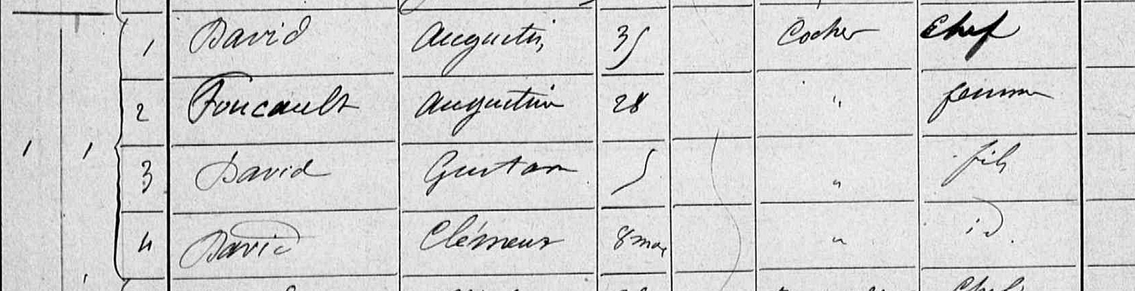 1 David Augustin 35 Cocher Chef
2 Foucault Augustine 28 " femme
1 1 3 David Gustave 5 " fils
4 David Clément 8 mois " id.